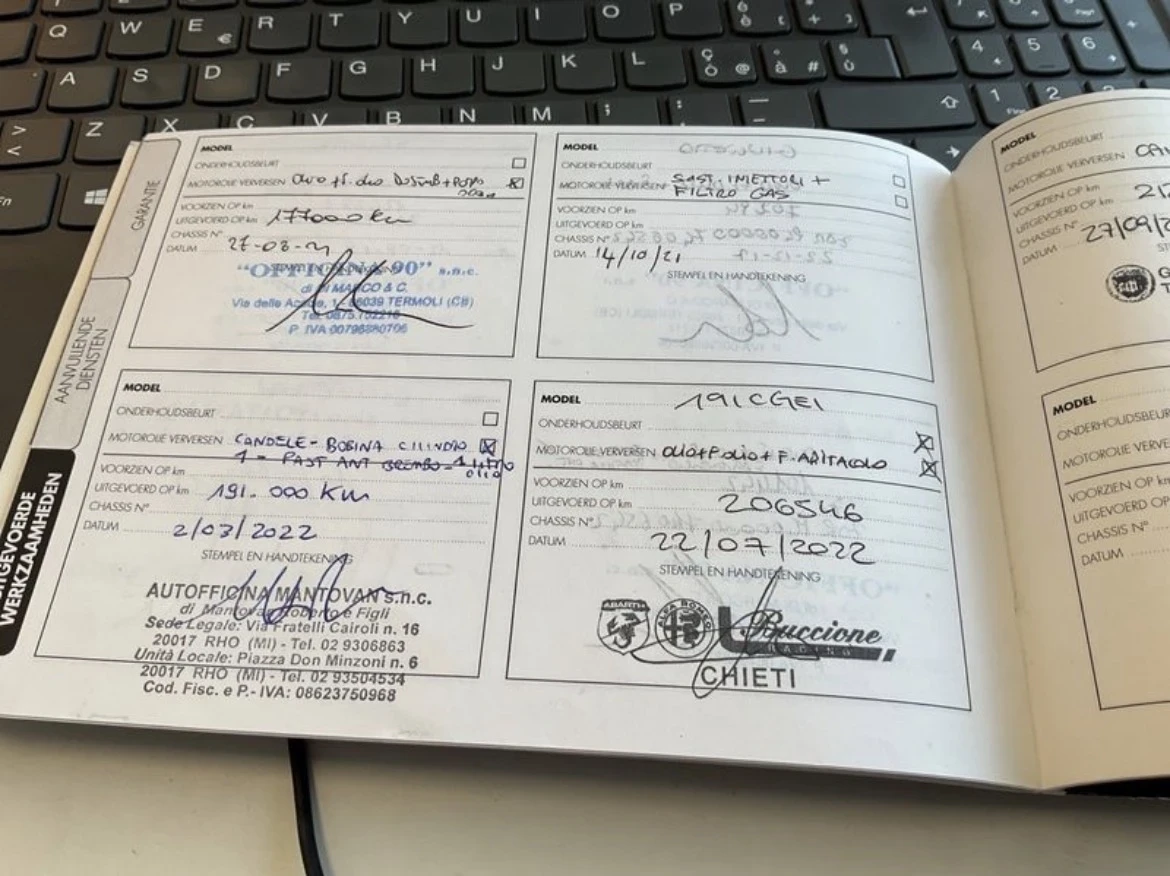 Q W E R T Y U I O P
€
A S D F G H J K L
Z X C V B N M
4 5 6
1 2
Fn
GARANTIE
AANVULLENDE
DIENSTEN
WERKZAAMHEDEN
MODEL
ONDERHOUDSBEURT
MOTOROLIE VERVERSEN
VOORZIEN OP km
UITGEVOERD OP km 177000 km
CHASSIS N°
DATUM 27-08-21
STEMPEL EN HANDTEKENING
"OFFICINA 90" s.n.c.
di DI MARCO & C.
Via delle Acacie, 1 - 86039 TERMOLI (CB)
Tel. 0875.752216
P. IVA 00796880706
MODEL
ONDERHOUDSBEURT
MOTOROLIE VERVERSEN SOST. INIETTORI +
FILTRO GAS
VOORZIEN OP km
UITGEVOERD OP km
CHASSIS N°
DATUM 14/10/21
STEMPEL EN HANDTEKENING
MODEL
ONDERHOUDSBEURT
MOTOROLIE VERVERSEN CANDELE - BOBINA CILINDRO
1 - PAST ANT BREMBO - 1 LITRO
OLIO
VOORZIEN OP km
UITGEVOERD OP km 191.000 Km
CHASSIS N°
DATUM 2/03/2022
STEMPEL EN HANDTEKENING
AUTOFFICINA MANTOVAN s.n.c.
di Mantovan Roberto e Figli
Sede Legale: Via Fratelli Cairoli n. 16
20017 RHO (MI) - Tel. 02 9306863
Unità Locale: Piazza Don Minzoni n. 6
20017 RHO (MI) - Tel. 02 93504534
Cod. Fisc. e P.- IVA: 08623750968
MODEL 191CGEI
ONDERHOUDSBEURT
MOTOROLIE VERVERSEN olio+F.olio+F.ABITACOLO
VOORZIEN OP km
UITGEVOERD OP km 206546
CHASSIS N°
DATUM 22/07/2022
STEMPEL EN HANDTEKENING
ABARTH ALFA ROMEO Buccione
RACING
CHIETI
MODEL
ONDERHOUDSBEURT
MOTOROLIE VERVERSEN
VOORZIEN OP km
UITGEVOERD OP km
CHASSIS N°
DATUM 27/09/2
MODEL
ONDERHOUDSBEUR
MOTOROLIE VERVE
VOORZIEN OP km
UITGEVOERD OP
CHASSIS N°
DATUM